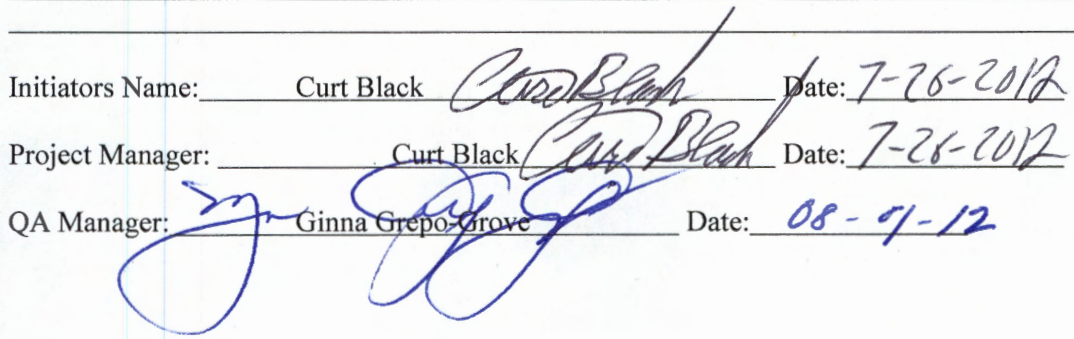 Initiators Name: Curt Black Curt Black Date: 7-26-2012
Project Manager: Curt Black Curt Black Date: 7-26-2012
QA Manager: Ginna Grepo-Grove Date: 08-01-12